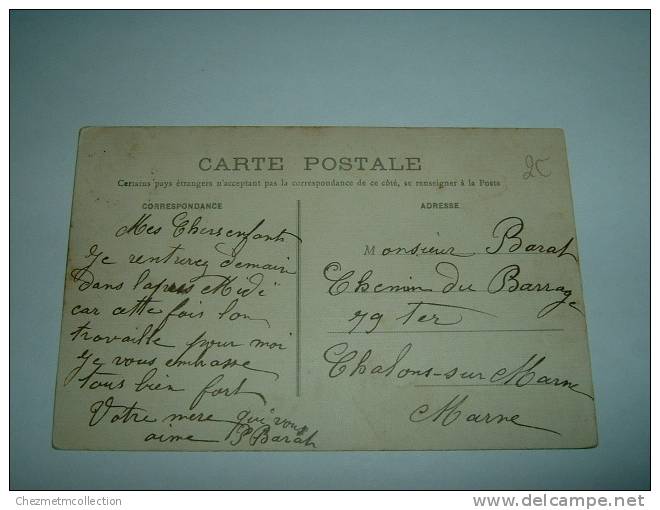 CARTE POSTALE
2C
Certains pays étrangers n'acceptant pas la correspondance de ce côté, se renseigner à la Poste
CORRESPONDANCE
Mes Chers enfants
Je rentrerez demain
dans lapres Midi
car cette fois lon
travaille pour moi
Je vous embrasse
tous bien fort
Votre mere qui vous
aime P Barat
ADRESSE
Monsieur Barat
Chemin du Barrage
79 Ter
Chalons-sur Marne
Marne
Chezmetmcollection
delcampe.net